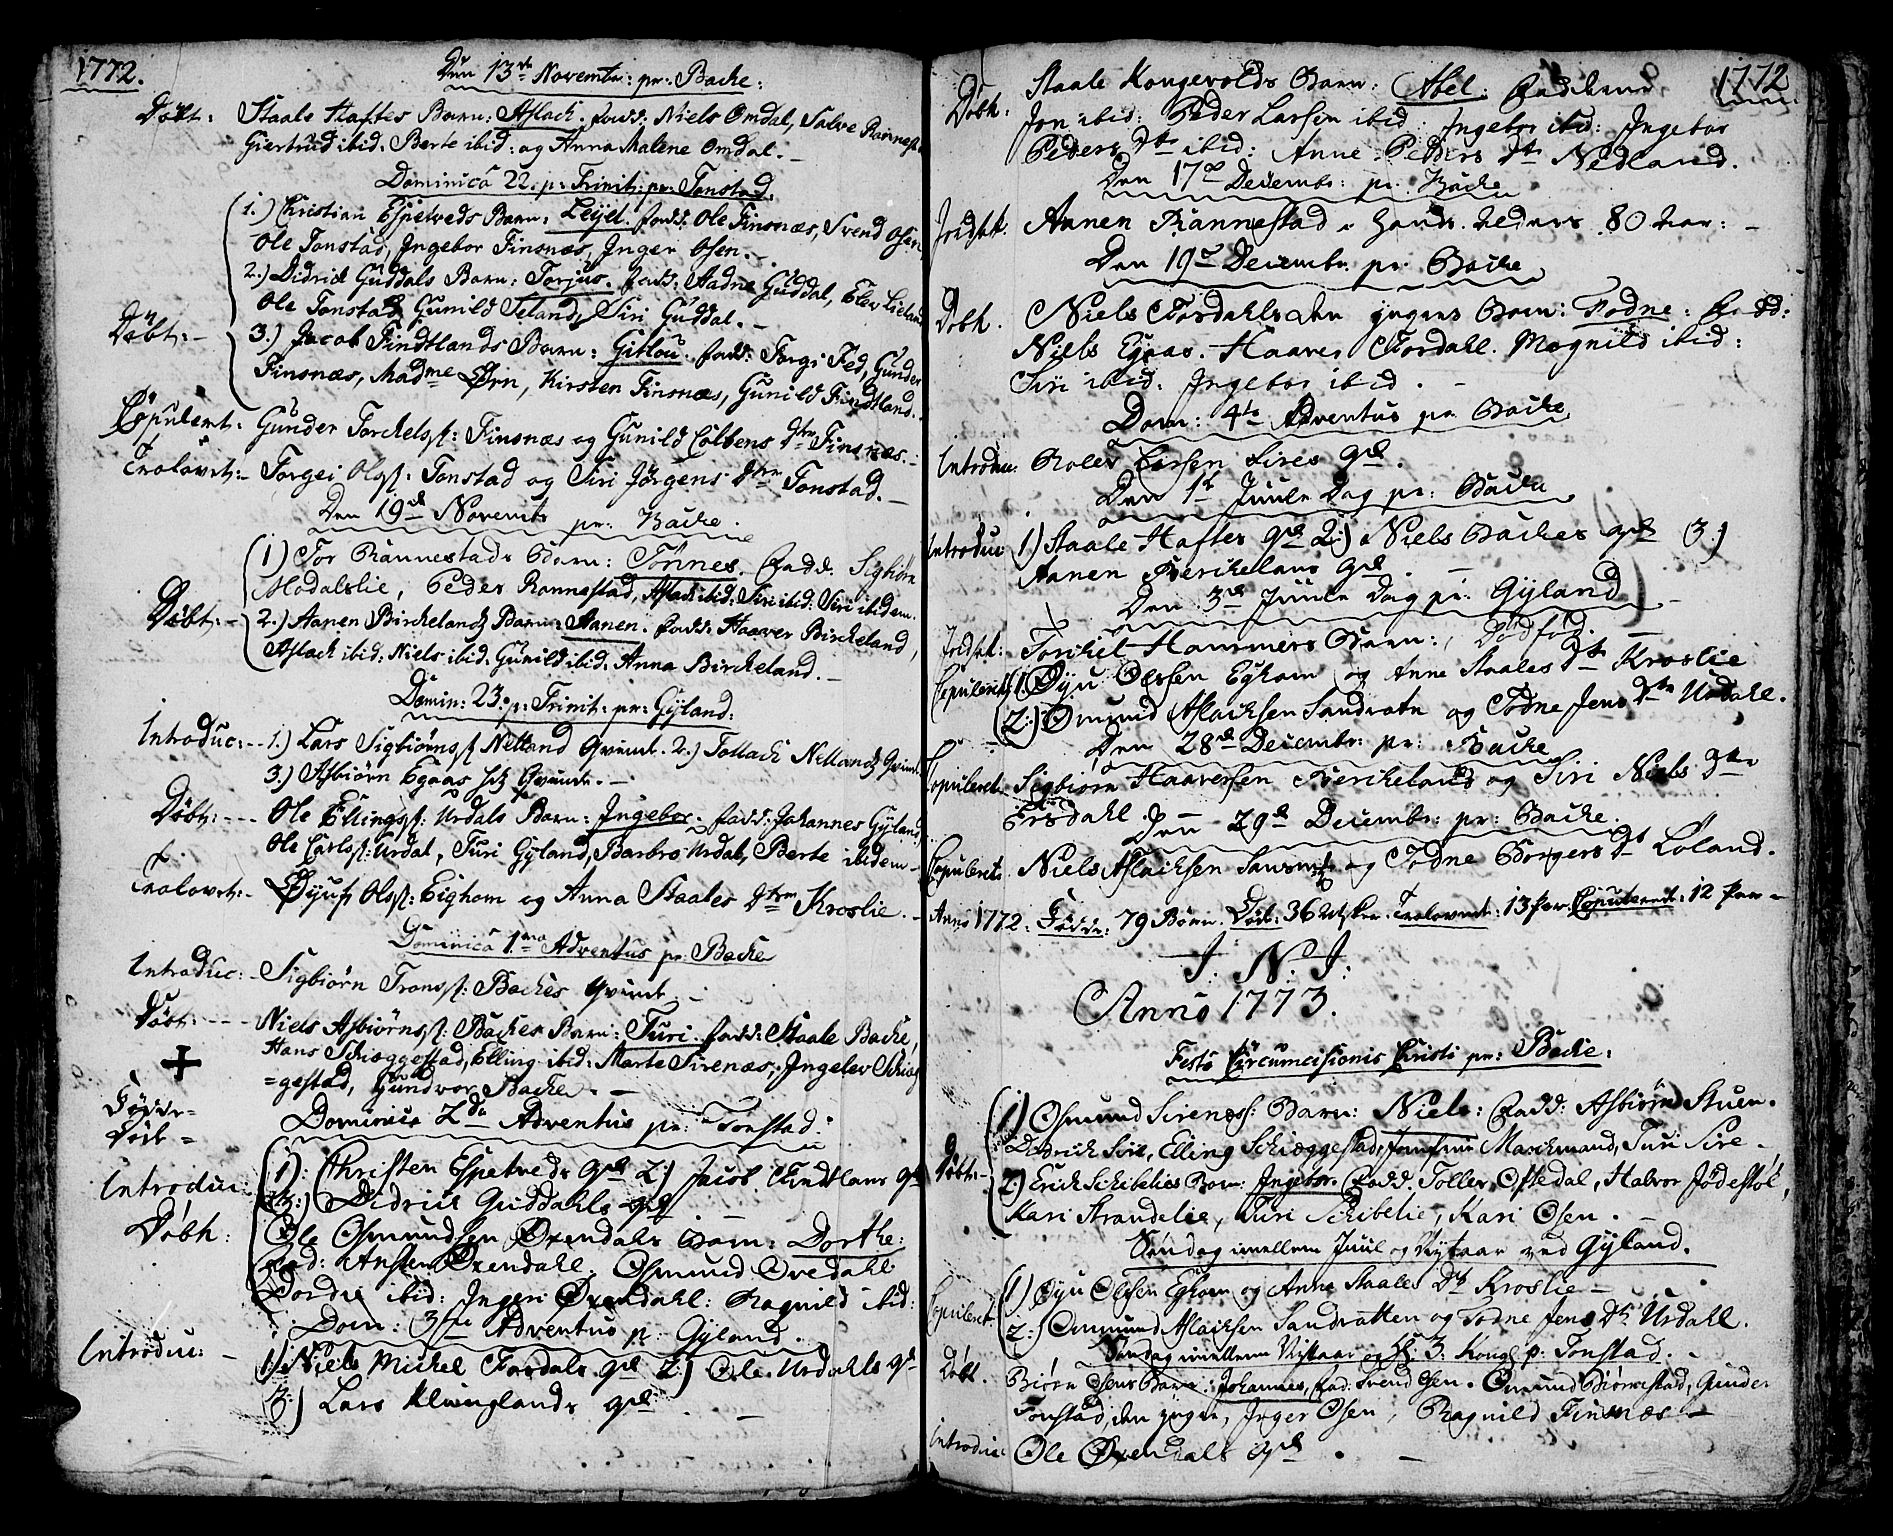 1772.
Den 13de Novembr: pr: Backe:
Døbt: Staale Haftes Barn: Aslach. fadd: Niels Omdal, Salve Rannest:
Giertrud ibid. Berte ibid: og Anna Malene Omdal. –
Dominica 22. p: Trinit: pr: Tonstad.
1.) Christian Espetveds Barn: Leijel. fadd: Ole Finsnæs, Svend Osen,
Ole Tonstad, Ingebor Finsnæs, Inger Osen. –
2.) Didrick Guddals Barn: Torjus. fadd: Aadne Guddal, Elev Lieland
Ole Tonstad, Gunild Seland, Siri Guddal. –
Døbt: – 3.) Jacob Findtlands Barn: Gitlou. fadd: Torgi Fed, Gunder
Finsnæs, Madme Ørn, Kirsten Finsnæs, Gunild Findtland.
Copuleret: Gunder Torckelss: Finsnæs og Gunild Colbens Dtr Finsnæs –
Trolovet: – Torgei Olss: Tonstad og Siri Jørgens Dtr Tonstad. –
Den 19de Novembr pr: Backe.
1) Tor Rannestads Barn: Tønnes. Fadd: Sigbiørn
Modalslie, Peder Rannestad, Aslach ibid: Siri ibid: Siri ibidem.
Døbt: – 2.) Aanen Birckelands Barn: Aanen. fadd: Haaver Birckeland,
Aslach ibid: Niels ibid: Gunild ibid: Anna Birckeland. –
Domin: 23. p: Trinit: pr: Gyland:
Introduc: – 1.) Lars Sigbiørnss Netland Qvinde. 2.) Tollach Netlands Qvinde
3.) Asbiørn Egaas Qvinde. –
Døbt: – – – Ole Ellingss: Urdals Barn: Ingebor. fadd: Johannes Gyland,
Ole Carlss: Urdal, Turi Gyland, Barbro Urdal, Berte ibidem –
Trolovet: – Øyuf Olss: Eighom og Anna Staales Dtr Kroslie. –
Dominica 1ma Adventus pr: Backe
Introduc: – Sigbiørn Tronss: Backes Qvinde –
Døbt: – – – Niels Asbiørnss: Backes Barn: Turi. fadd: Staale Backe,
Hans Schieggestad, Elling ibid: Marte Sirenæs, Ingelev Schieg
=gestad, Gundvor Backe. – –
Fødde =
Døde =
Dominica 2da Adventus pr: Tonstad.
Introduc: 1): Christen Espetveds Qvd 2:) Jacob Findtlans Qvd
3:) Didrick Guddahls Qvd –
Døbt: Ole Osmundsen Øxendals Barn: Dorthe:
Fad: Ansten Øxendahl. Osmund Ovedahl
Dordie ibid: Ingeri Øxendahl: Ragnild ibid:
Dom: 3tia Adventus p: Gyland.
Introduc: – 1) Niels Mickel Fosdals Qvd 2:) Ole Urdahls Qvd
3:) Lars Kleivglands Qvd –
1772
Døbt: Staale Kongevolds Barn: Abel: Fadderne
Jon ibid: Peder Larsen ibid: Ingebor ibid: Ingebor
Peders Dtr ibid: Anne Peders Dtr Nedland.
Den 17de Decembr: pr: Backe
Jordfæst: Aanen Rannestad, hands alders 80 Aar: –
Den 19de Decembr: pr: Backe
Døbt. Niels Fosdahls den yngers Barn: Todne: Fadd:
Niels Egaas. Haaver Fosdahl. Magnild ibid:
Siri ibid. Ingebor ibid. –
Dom: 4te Adventus pr: Backe
Introdu: Roler Larsen Sires Qvd.
Den 1ste Juule Dag pr: Backe
Introduc: 1) Staale Haftes Qvd 2:) Niels Backes Qvd 3:)
Aanen Berckelans Qvd. –
Den 3de Juule Dag pr: Gyland –
Jordfæst: Torckel Hammers Barn: Dødfød. –
Copuleret: 1. Øyu Olssen Eghom og Anne Staales Dtr Kroslie
2:) Omund Aslachsen Sandvatn og Todne Jens Dtr Urdahl.
Den 28de Decembr: pr: Backe
Copuleret. Sigbiørn Haaversen Berckeland og Siri Niels Dtr
Ersdahl. Den 29de Decembr: pr: Backe.
Copuleret: Niels Aslachsen og Todne Borgers Dtr Løland.
Anno 1772. Fødde: 79 Børn. Døde: 36 Trolovede: 13 par. Copulerede: 12 Par –
I: N: J:
Anno 1773.
Festo Circumcisionis Christi pr: Backe:
1) Osmund Sirenæss: Barn: Niels: Fadd: Asbiørn Stuen.
Døbt: – Didrich Sire, Elling Schieggestad, Marchmand, Turi Sire –
2) Erich Schibelies Barn: Ingebor. Fadd: Tolle Oftedal, Halvor Jødestøl,
Kari Strandelie, Turi Schibelie, Kari Osen. –
Søndag imellem Juul og Nytaar ved Gyland.
Copuleret: 1) Øyu Olssen Eghom og Anne Staales Dtr Kroslie –
2:) Ommund Aslachsen Sandvatten og Todne Jens Dtr Urdahl.
Søndag imellem Nytaar og H: 3. Kong: p: Tonstad. –
Døbt. Biørn Osens Barn: Johannes, fad: Svend Osen. Omund Biørnestad, Gunder
Tonstad, den yngre, Inger Osen, Ragnild Finsnæs. –
Introduc: Ole Øxendals Qvd. –